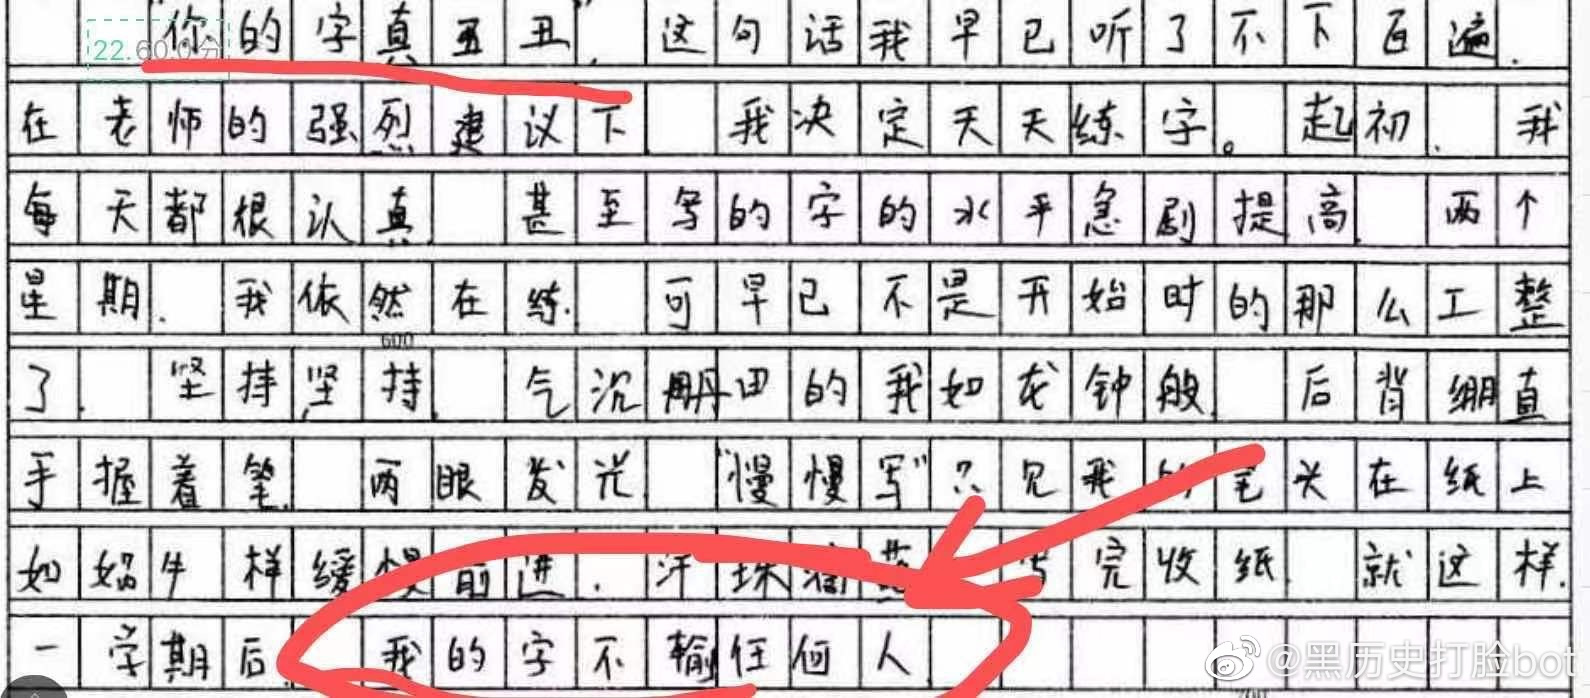 "你的字真丑丑"这句话我早已听了不下百遍.
22.60.0分
在老师的强烈建议下 我决定天天练字。起初.我
每天都很认真 甚至写的字的水平急剧提高 两个
星期.我依然在练.可早已不是开始时的那么工整
600
了.坚持坚持 气沉丹田的我如龙钟般 后背绷直
手握着笔.两眼发光 "慢慢写"只见我的笔头在纸上
如蜗牛样缓慢前进.汗珠滴落 写完收纸 就这样.
一学期后 我的字不输任何人
700
@黑历史打脸bot